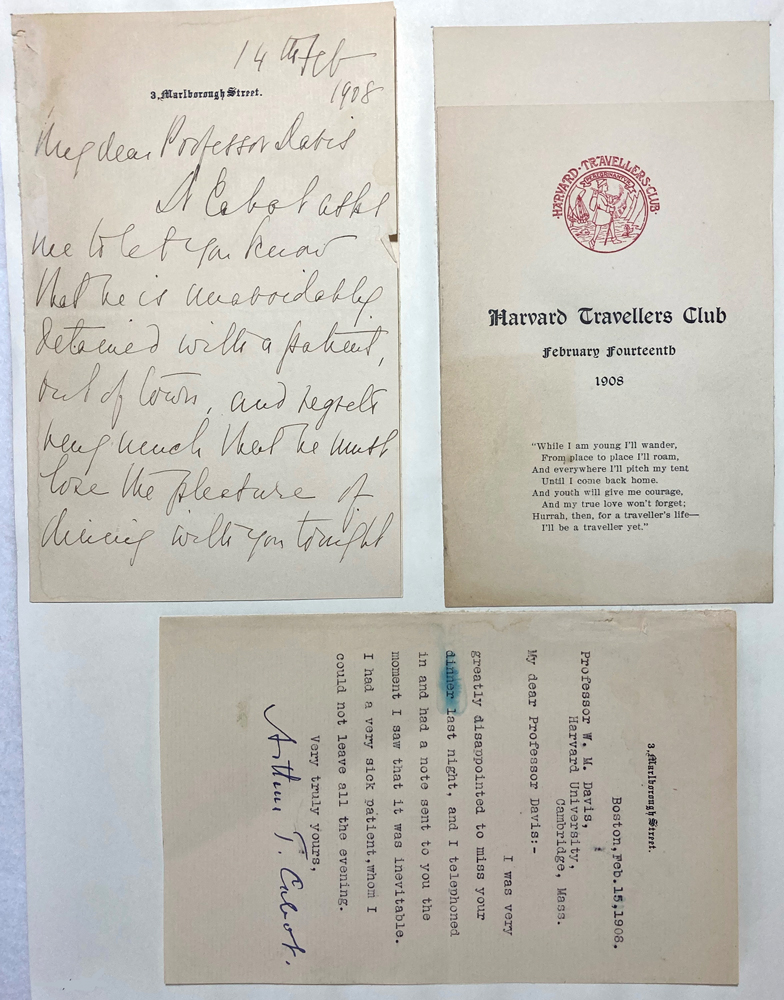 14th Feb
3, Marlborough Street.
1908
My dear Professor Davis
Dr Cabot asks
me to let you know
that he is unavoidably
detained with a patient,
out of town, and regrets
very much that he must
lose the pleasure of
dining with you tonight
HARVARD·TRAVELLERS·CLUB·
Harvard Travellers Club
February Fourteenth
1908
"While I am young I'll wander,
From place to place I'll roam,
And everywhere I'll pitch my tent
Until I come back home.
And youth will give me courage,
And my true love won't forget;
Hurrah, then, for a traveller's life—
I'll be a traveller yet."
3, Marlborough Street.
Boston, Feb. 15, 1908.
Professor W. M. Davis,
Harvard University,
Cambridge, Mass.
My dear Professor Davis:-
I was very
greatly disappointed to miss your
dinner last night, and I telephoned
in and had a note sent to you the
moment I saw that it was inevitable.
I had a very sick patient,whom I
could not leave all the evening.
Very truly yours,
Arthur T. Cabot.